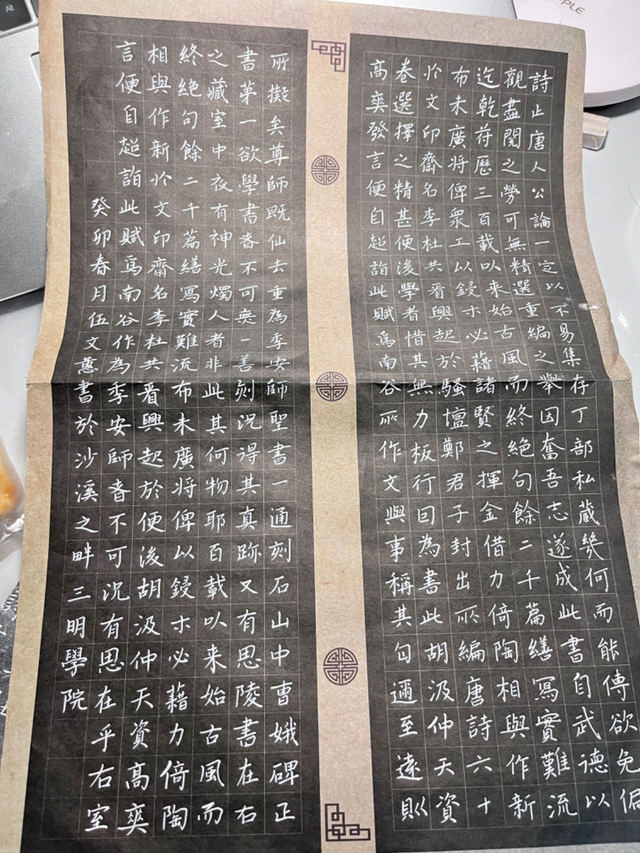 詩止唐人公論一定以不易集存丁部私藏幾何而能傳欲免侷
觀盡閱之勞可無精選重編之舉因奮吾志遂成此書自武德以
迄乾符歷三百載以來始古風而終絕句餘二千篇繕寫實難流
布未廣將俾衆工以鋟木必藉諸賢之揮金借力倚陶相與作新
於文印齋名李杜共晉興起於騷壇鄭君子封出所編唐詩六十
卷選擇之精甚便後學者惜其無力板行曰為書此胡汲仲天資
高爽發言便自超詣此賦爲南谷所作文與事稱其句邇至遠則
所擬矣尊師既仙去重為季安師聖書一通刻石山中曹娥碑正
書第一欲學書者不可無一善刻況得其真跡又有思陵書在右
之藏室中夜有神光燭人者非此其何物耶百載以来始古風而
終絕句餘二千篇繕寫實難流布未廣將俾以鋟木必藉力倚陶
相與作新於文印齋名李杜共晉興起於便後胡汲仲天資高爽
言便自超詣此賦爲南谷作為季安師者不可況有思在乎右室
癸卯春月伍文慧書於沙溪之畔三明學院